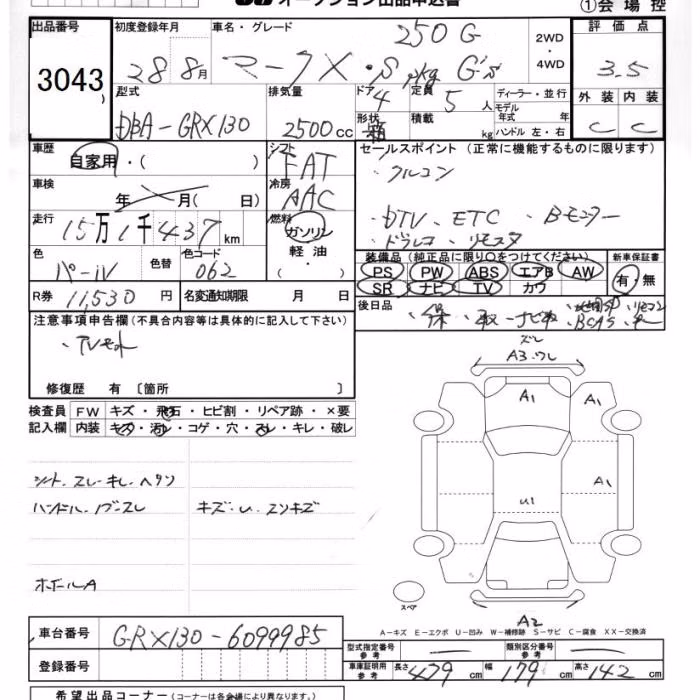 オークション出品申込書
①会場控
出品番号 初度登録年月 車名・グレード 評価点
3043 28 8月 マークX・S pkg G's 250G 2WD・4WD 3.5
外装 内装
C C
型式 排気量 ドア 定員 ディーラー・並行
DBA-GRX130 2500cc 4 5人 モデル年式 年
形状 積載 kg ハンドル 左・右
箱
車歴 シフト セールスポイント (正常に機能するものに限ります)
自家用・( ) FAT ・クルコン
車検 冷房
年 月( 日) AAC
走行 燃料 ・DTV ・ETC ・Bモニター
15万1千437km ガソリン・軽油・( ) ・ドラレコ ・リモスタ
色 色替 色コード 装備品(純正品に限り○をつけてください) 新車保証書
パール 062 PS PW ABS エアB AW 有・無
SR ナビ TV カワ
R券 11,530円 名変通知期限 月 日 後日品
・保 ・取 ・ナビ取 ・地図SD ・リモコン
・BCAS
注意事項申告欄(不具合内容等は具体的に記入して下さい)
・TVモット
修復歴 有 〔箇所 〕
検査員 FW キズ・飛石・ヒビ割・リペア跡・×要
記入欄 内装 キズ・汚レ・コゲ・穴・スレ・キレ・破レ
シート、スレ・キレ・ヘタリ
ハンドル、ノブースレ キズ・U、スリキズ
ホイールA
ズレ
A3・ワレ
A1 A1
A1
U1
スペア
A2
A-キズ E-エクボ U-凹み W-補修跡 S-サビ C-腐食 XX-交換済
車台番号 GRX130-6099985 型式指定番号 参考 類別区分番号 参考
登録番号 車庫証明用 参考 長さ 479cm 幅 179cm 高さ 142cm
希望出品コーナー(コーナーは各会場により異なります。)